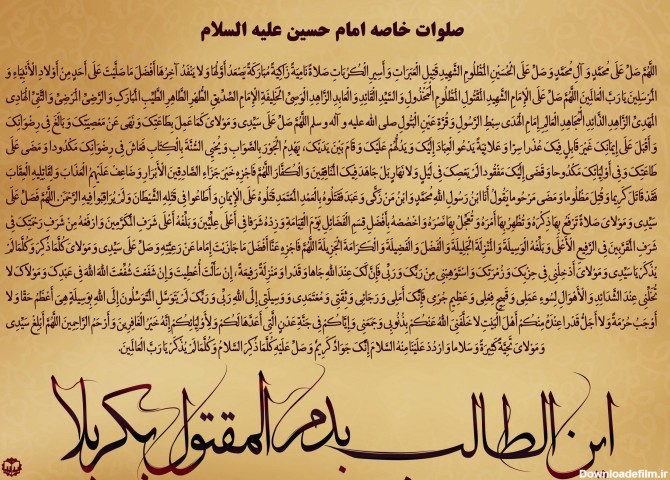 صلوات خاصه امام حسین علیه السلام
اللَّهُمَّ صَلِّ عَلَى مُحَمَّدٍ وَ آلِ مُحَمَّدٍ وَ صَلِّ عَلَى الْحُسَيْنِ الْمَظْلُومِ الشَّهِيدِ قَتِيلِ الْعَبَرَاتِ وَ أَسِيرِ الْكُرُبَاتِ صَلَاةً نَامِيَةً زَاكِيَةً مُبَارَكَةً يَصْعَدُ أَوَّلُهَا وَ لَا يَنْفَدُ آخِرُهَا أَفْضَلَ مَا صَلَّيْتَ عَلَى أَحَدٍ مِنْ أَوْلَادِ الْأَنْبِيَاءِ وَ
الْمُرْسَلِينَ يَا رَبَّ الْعَالَمِينَ اللَّهُمَّ صَلِّ عَلَى الْإِمَامِ الشَّهِيدِ الْمَقْتُولِ الْمَظْلُومِ الْمَخْذُولِ وَ السَّيِّدِ الْقَائِدِ وَ الْعَابِدِ الزَّاهِدِ الْوَصِيِّ الْخَلِيفَةِ الْإِمَامِ الصِّدِّيقِ الطُّهْرِ الطَّاهِرِ الطَّيِّبِ الْمُبَارَكِ وَ الرَّضِيِّ الْمَرْضِيِّ وَ التَّقِيِّ الْهَادِي
الْمَهْدِيِّ الزَّاهِدِ الذَّائِدِ الْمُجَاهِدِ الْعَالِمِ إِمَامِ الْهُدَى سِبْطِ الرَّسُولِ وَ قُرَّةِ عَيْنِ الْبَتُولِ صلی الله علیه و آله وسلم اللَّهُمَّ صَلِّ عَلَى سَيِّدِي وَ مَوْلَايَ كَمَا عَمِلَ بِطَاعَتِكَ وَ نَهَى عَنْ مَعْصِيَتِكَ وَ بَالَغَ فِي رِضْوَانِكَ
وَ أَقْبَلَ عَلَى إِيمَانِكَ غَيْرَ قَابِلٍ فِيكَ عُذْرًا سِرًّا وَ عَلَانِيَةً يَدْعُو الْعِبَادَ إِلَيْكَ وَ يَدُلُّهُمْ عَلَيْكَ وَ قَامَ بَيْنَ يَدَيْكَ، يَهْدِمُ الْجَوْرَ بِالصَّوَابِ وَ يُحْيِي السُّنَّةَ بِالْكِتَابِ فَعَاشَ فِي رِضْوَانِكَ مَكْدُودًا وَ مَضَى عَلَى
طَاعَتِكَ وَ فِي أَوْلِيَائِكَ مَكْدُوحًا وَ قَضَى إِلَيْكَ مَفْقُودًا لَمْ يَعْصِكَ فِي لَيْلٍ وَ لَا نَهَارٍ بَلْ جَاهَدَ فِيكَ الْمُنَافِقِينَ وَ الْكُفَّارَ اللَّهُمَّ فَاجْزِهِ خَيْرَ جَزَاءِ الصَّادِقِينَ الْأَبْرَارِ وَ ضَاعِفْ عَلَيْهِمُ الْعَذَابَ وَ لِقَاتِلِيهِ الْعِقَابَ
فَقَدْ قَاتَلَ كَرِيمًا وَ قُتِلَ مَظْلُومًا وَ مَضَى مَرْحُومًا يَقُولُ أَنَا ابْنُ رَسُولِ اللَّهِ مُحَمَّدٍ وَ ابْنُ مَنْ زَكَّى وَ عَبَدَ فَقَتَلُوهُ بِالْعَمْدِ الْمُعْتَمَدِ قَتَلُوهُ عَلَى الْإِيمَانِ وَ أَطَاعُوا فِي قَتْلِهِ الشَّيْطَانَ وَ لَمْ يُرَاقِبُوا فِيهِ الرَّحْمَنَ. اللَّهُمَّ فَصَلِّ عَلَى
سَيِّدِي وَ مَوْلَايَ صَلَاةً تَرْفَعُ بِهَا ذِكْرَهُ وَ تُظْهِرُ بِهَا أَمْرَهُ وَ تُعَجِّلُ بِهَا نَصْرَهُ وَ اخْصُصْهُ بِأَفْضَلِ قِسَمِ الْفَضَائِلِ يَوْمَ الْقِيَامَةِ وَ زِدْهُ شَرَفًا فِي أَعْلَى عِلِّيِّينَ وَ بَلِّغْهُ أَعْلَى شَرَفِ الْمُكَرَّمِينَ وَ ارْفَعْهُ مِنْ شَرَفِ رَحْمَتِكَ فِي
شَرَفِ الْمُقَرَّبِينَ فِي الرَّفِيعِ الْأَعْلَى وَ بَلِّغْهُ الْوَسِيلَةَ وَ الْمَنْزِلَةَ الْجَلِيلَةَ وَ الْفَضْلَ وَ الْفَضِيلَةَ وَ الْكَرَامَةَ الْجَزِيلَةَ اللَّهُمَّ فَاجْزِهِ عَنَّا أَفْضَلَ مَا جَازَيْتَ إِمَامًا عَنْ رَعِيَّتِهِ وَ صَلِّ عَلَى سَيِّدِي وَ مَوْلَايَ كُلَّمَا ذُكِرَ وَ كُلَّمَا لَمْ
يُذْكَرْ يَا سَيِّدِي وَ مَوْلَايَ أَدْخِلْنِي فِي حِزْبِكَ وَ زُمْرَتِكَ وَ اسْتَوْهِبْنِي مِنْ رَبِّكَ وَ رَبِّي فَإِنَّ لَكَ عِنْدَ اللَّهِ جَاهًا وَ قَدْرًا وَ مَنْزِلَةً رَفِيعَةً، إِنْ سَأَلْتَ أُعْطِيتَ وَ إِنْ شَفَعْتَ شُفِّعْتَ اللَّهَ اللَّهَ فِي عَبْدِكَ وَ مَوْلَاكَ لَا
تُخَلِّنِي عِنْدَ الشَّدَائِدِ وَ الْأَهْوَالِ لِسُوءِ عَمَلِي وَ قَبِيحِ فِعْلِي وَ عَظِيمِ جُرْمِي فَإِنَّكَ أَمَلِي وَ رَجَائِي وَ ثِقَتِي وَ مُعْتَمَدِي وَ وَسِيلَتِي إِلَى اللَّهِ رَبِّي وَ رَبِّكَ لَمْ يَتَوَسَّلِ الْمُتَوَسِّلُونَ إِلَى اللَّهِ بِوَسِيلَةٍ هِيَ أَعْظَمُ حَقًّا وَ لَا
أَوْجَبُ حُرْمَةً وَ لَا أَجَلُّ قَدْرًا عِنْدَهُ مِنْكُمْ أَهْلَ الْبَيْتِ لَا خَلَّفَنِيَ اللَّهُ عَنْكُمْ بِذُنُوبِي وَ جَمَعَنِي وَ إِيَّاكُمْ فِي جَنَّةِ عَدْنٍ الَّتِي أَعَدَّهَا لَكُمْ وَ لِأَوْلِيَائِكُمْ إِنَّهُ خَيْرُ الْغَافِرِينَ وَ أَرْحَمُ الرَّاحِمِينَ اللَّهُمَّ أَبْلِغْ سَيِّدِي
وَ مَوْلَايَ تَحِيَّةً كَثِيرَةً وَ سَلَامًا وَ ارْدُدْ عَلَيْنَا مِنْهُ السَّلَامَ إِنَّكَ جَوَادٌ كَرِيمٌ وَ صَلِّ عَلَيْهِ كُلَّمَا ذُكِرَ السَّلَامُ وَ كُلَّمَا لَمْ يُذْكَرْ يَا رَبَّ الْعَالَمِينَ.
این الطالب بدم المقتول بکربلا
Downloadefilm.ir